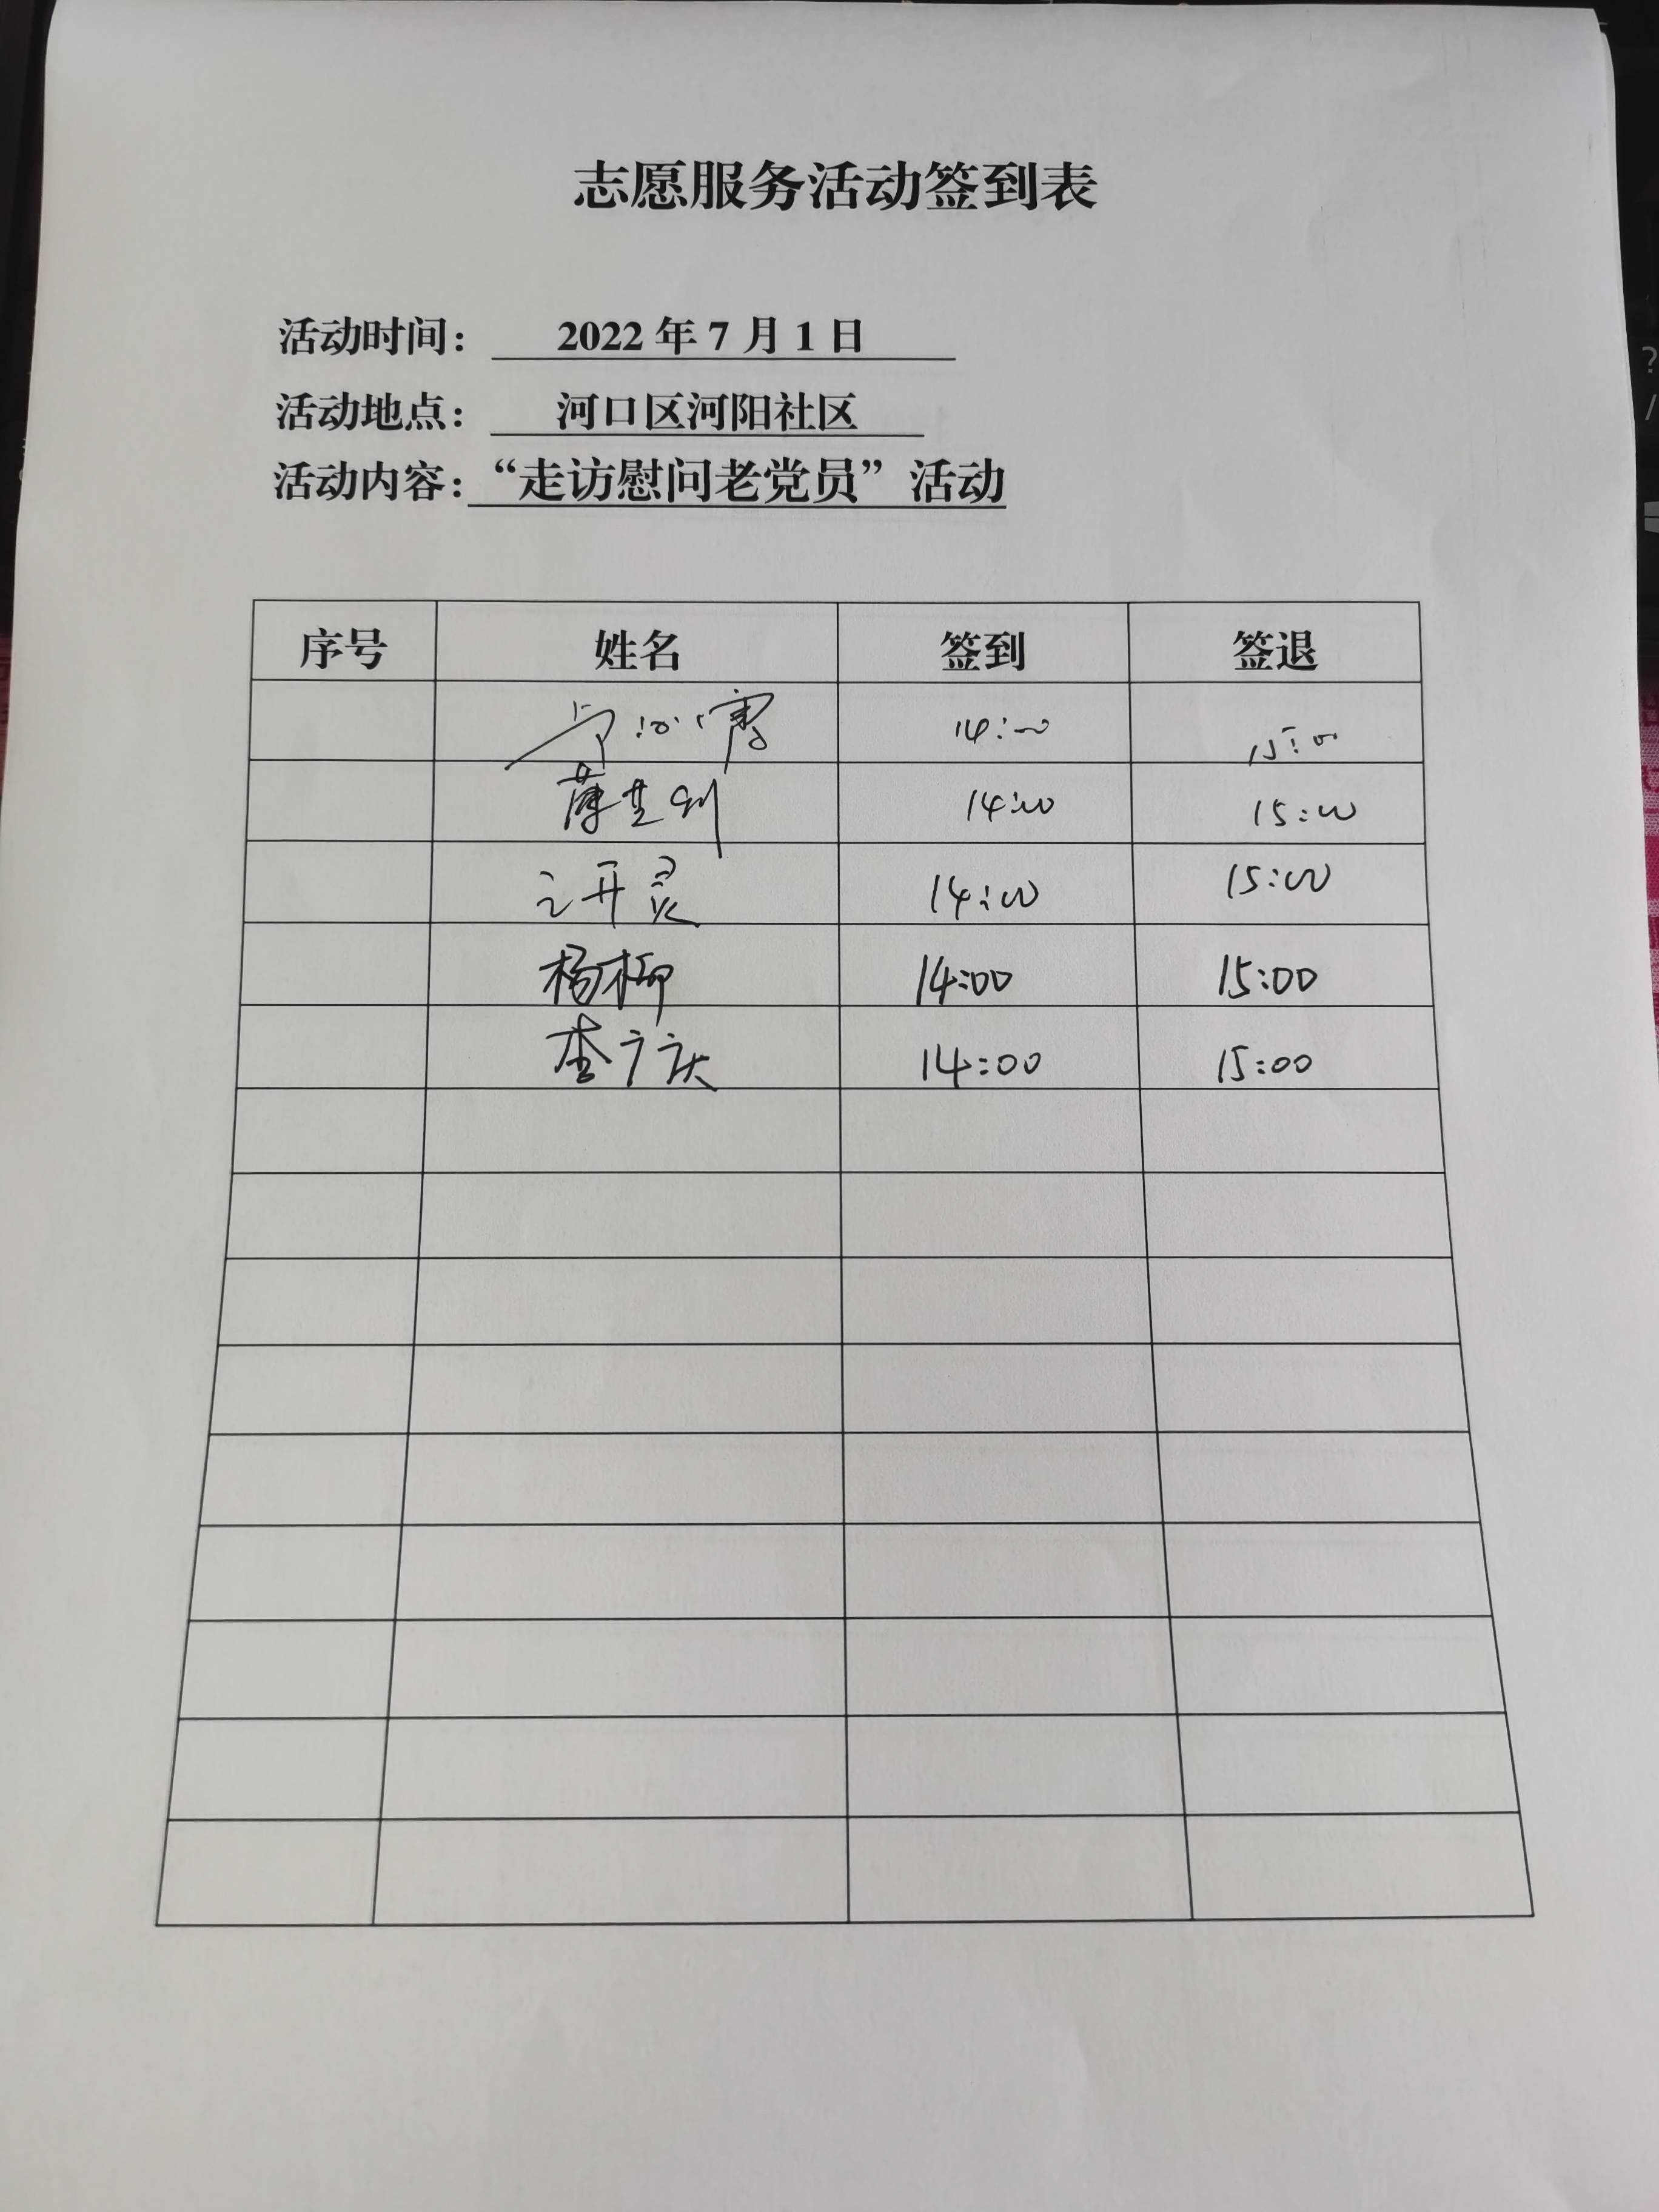 志愿服务活动签到表
活动时间： 2022 年 7 月 1 日
活动地点： 河口区河阳社区
活动内容：“走访慰问老党员”活动
序号 姓名 签到 签退
14:00 15:00
14:00 15:00
14:00 15:00
杨柳 14:00 15:00
李广庆 14:00 15:00